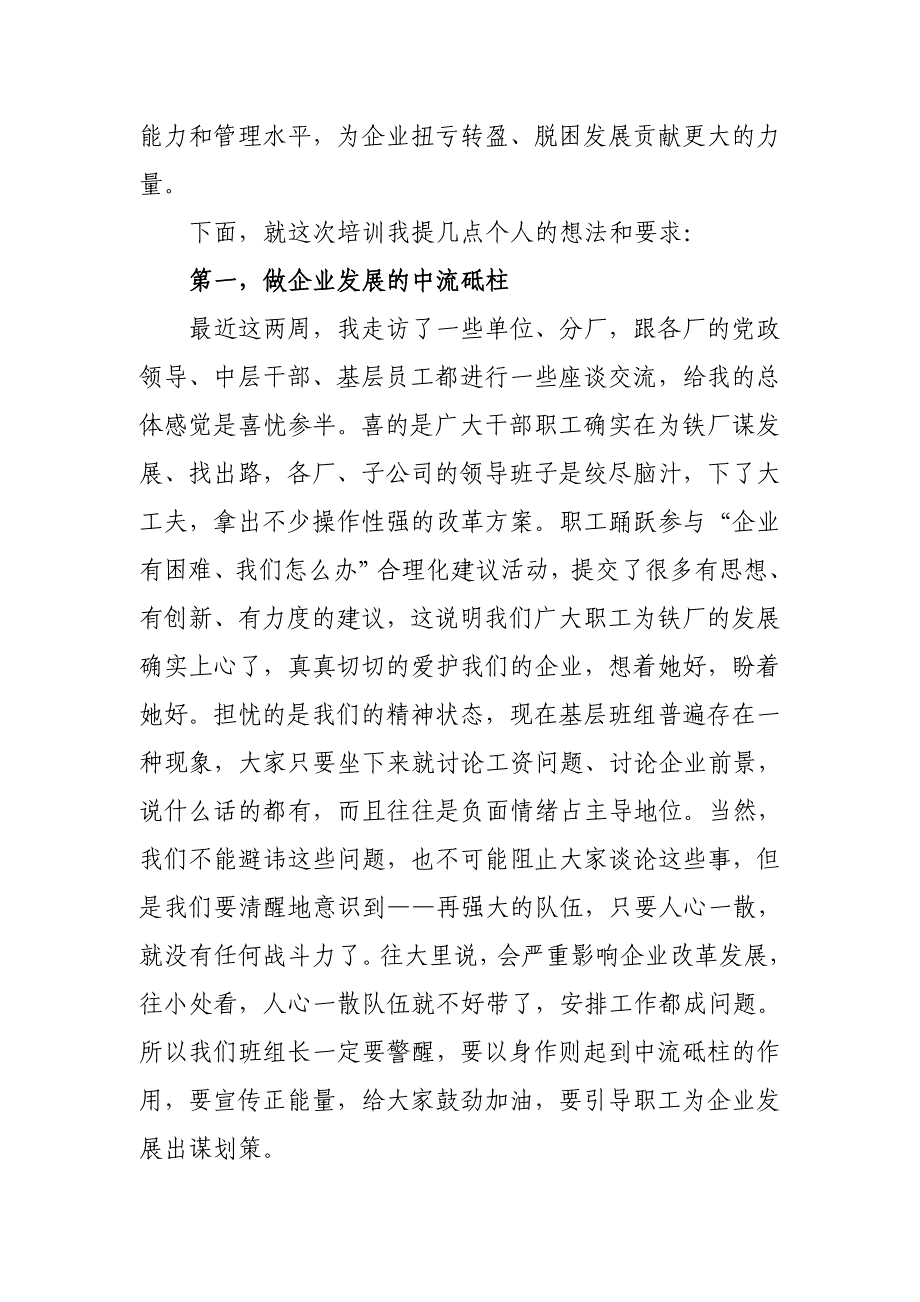 能力和管理水平，为企业扭亏转盈、脱困发展贡献更大的力
量。
下面，就这次培训我提几点个人的想法和要求：
第一，做企业发展的中流砥柱
最近这两周，我走访了一些单位、分厂，跟各厂的党政
领导、中层干部、基层员工都进行一些座谈交流，给我的总
体感觉是喜忧参半。喜的是广大干部职工确实在为铁厂谋发
展、找出路，各厂、子公司的领导班子是绞尽脑汁，下了大
工夫，拿出不少操作性强的改革方案。职工踊跃参与“企业
有困难、我们怎么办”合理化建议活动，提交了很多有思想、
有创新、有力度的建议，这说明我们广大职工为铁厂的发展
确实上心了，真真切切的爱护我们的企业，想着她好，盼着
她好。担忧的是我们的精神状态，现在基层班组普遍存在一
种现象，大家只要坐下来就讨论工资问题、讨论企业前景，
说什么话的都有，而且往往是负面情绪占主导地位。当然，
我们不能避讳这些问题，也不可能阻止大家谈论这些事，但
是我们要清醒地意识到——再强大的队伍，只要人心一散，
就没有任何战斗力了。往大里说，会严重影响企业改革发展，
往小处看，人心一散队伍就不好带了，安排工作都成问题。
所以我们班组长一定要警醒，要以身作则起到中流砥柱的作
用，要宣传正能量，给大家鼓劲加油，要引导职工为企业发
展出谋划策。